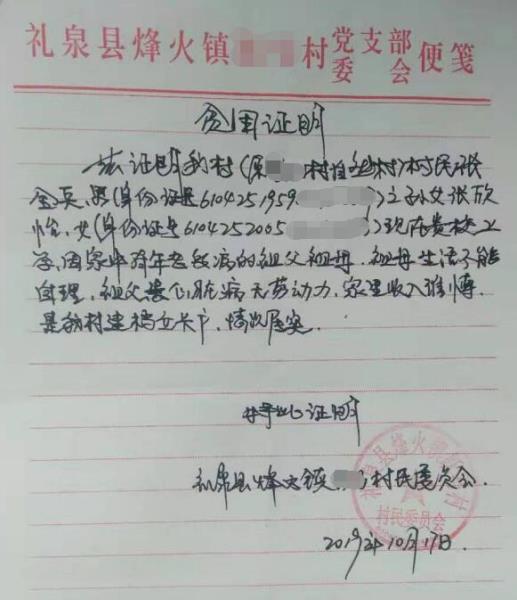 礼泉县烽火镇 村党支部委会便笺
贫困证明
兹证明我村(原 村 村)村民张
金 ,男(身份证号6104251959 )之孙女张欣
怡,女(身份证号6104252005 )现在贵校上
学,因家中有年老多病的祖父祖母,祖母生活不能
自理,祖父患心脏病无劳动力,家里收入 ,
是我村建档立卡户,情况属实.
特此证明
礼泉县烽火镇 村民委员会.
2019年10月17日.
礼泉县烽火镇 村
村民委员会